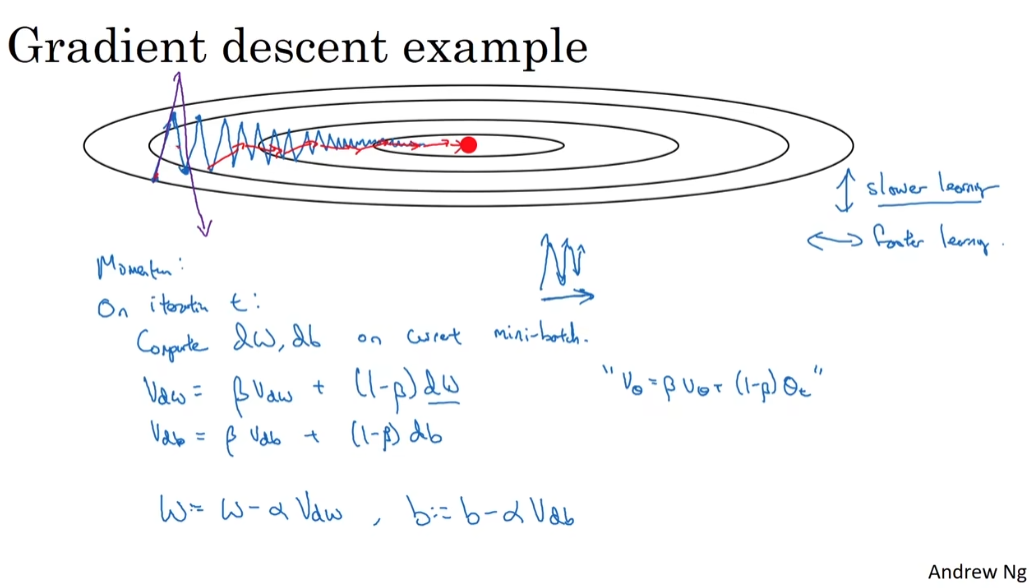 Gradient descent example
↕ slower learning
↔ faster learning.
Momentum:
On iteration t:
Compute dW, db on current mini-batch.
Vdw = β Vdw + (1-β) dW
"Vθ = β Vθ + (1-β) θt"
Vdb = β Vdb + (1-β) db
W := W - α Vdw , b := b - α Vdb
Andrew Ng